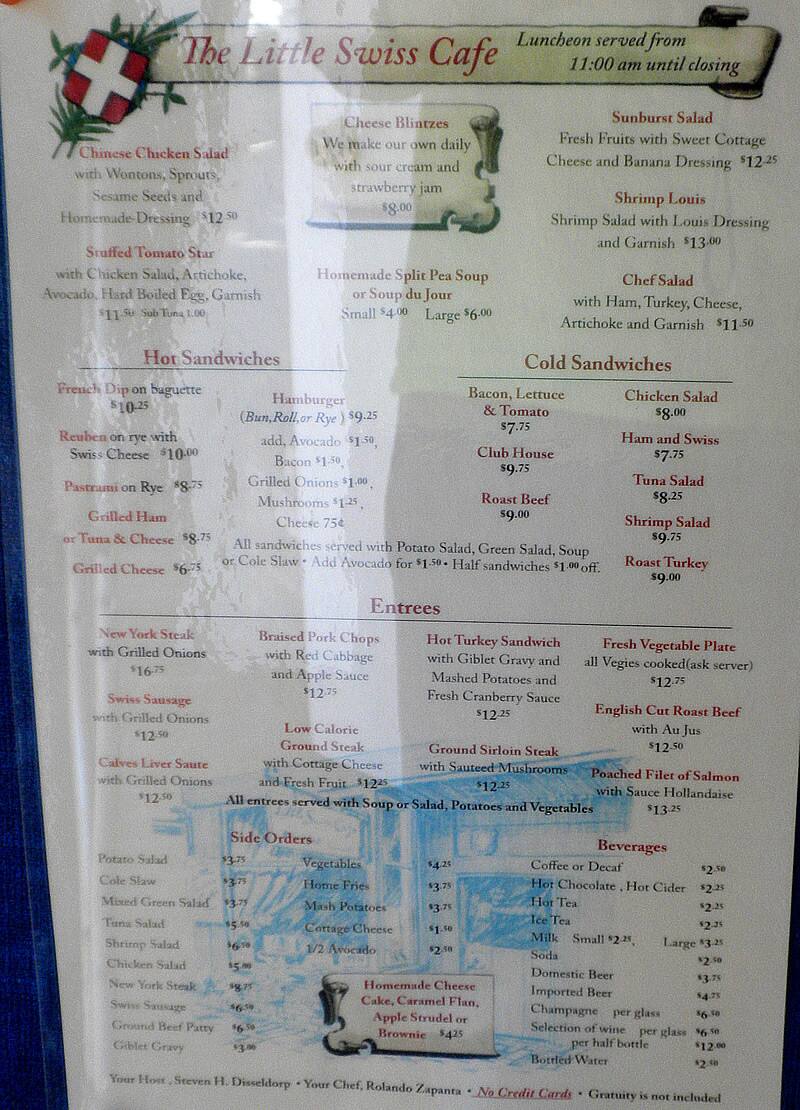 The Little Swiss Cafe
Luncheon served from
11:00 am until closing
Chinese Chicken Salad
with Wontons, Sprouts,
Sesame Seeds and
Homemade Dressing $12.50
Stuffed Tomato Star
with Chicken Salad, Artichoke,
Avocado, Hard Boiled Egg, Garnish
$11.50 Sub Tuna 1.00
Cheese Blintzes
We make our own daily
with sour cream and
strawberry jam
$8.00
Homemade Split Pea Soup
or Soup du Jour
Small $4.00 Large $6.00
Sunburst Salad
Fresh Fruits with Sweet Cottage
Cheese and Banana Dressing $12.25
Shrimp Louis
Shrimp Salad with Louis Dressing
and Garnish $13.00
Chef Salad
with Ham, Turkey, Cheese,
Artichoke and Garnish $11.50
Hot Sandwiches
French Dip on baguette
$10.25
Reuben on rye with
Swiss Cheese $10.00
Pastrami on Rye $8.75
Grilled Ham
or Tuna & Cheese $8.75
Grilled Cheese $6.75
Hamburger
(Bun,Roll,or Rye ) $9.25
add, Avocado $1.50,
Bacon $1.50,
Grilled Onions $1.00,
Mushrooms $1.25,
Cheese 75¢
Cold Sandwiches
Bacon, Lettuce
& Tomato
$7.75
Club House
$9.75
Roast Beef
$9.00
Chicken Salad
$8.00
Ham and Swiss
$7.75
Tuna Salad
$8.25
Shrimp Salad
$9.75
Roast Turkey
$9.00
All sandwiches served with Potato Salad, Green Salad, Soup
or Cole Slaw • Add Avocado for $1.50 • Half sandwiches $1.00 off.
Entrees
New York Steak
with Grilled Onions
$16.75
Swiss Sausage
with Grilled Onions
$12.50
Calves Liver Saute
with Grilled Onions
$12.50
Braised Pork Chops
with Red Cabbage
and Apple Sauce
$12.75
Low Calorie
Ground Steak
with Cottage Cheese
and Fresh Fruit $12.25
Hot Turkey Sandwich
with Giblet Gravy and
Mashed Potatoes and
Fresh Cranberry Sauce
$12.25
Ground Sirloin Steak
with Sauteed Mushrooms
$12.25
Fresh Vegetable Plate
all Vegies cooked(ask server)
$12.75
English Cut Roast Beef
with Au Jus
$12.50
Poached Filet of Salmon
with Sauce Hollandaise
$13.25
All entrees served with Soup or Salad, Potatoes and Vegetables
Side Orders
Potato Salad $3.75
Cole Slaw $3.75
Mixed Green Salad $3.75
Tuna Salad $5.50
Shrimp Salad $6.50
Chicken Salad $5.00
New York Steak $8.75
Swiss Sausage $6.50
Ground Beef Patty $6.50
Giblet Gravy $3.00
Vegetables $4.25
Home Fries $3.75
Mash Potatoes $3.75
Cottage Cheese $1.50
1/2 Avocado $2.50
Homemade Cheese
Cake, Caramel Flan,
Apple Strudel or
Brownie $4.25
Beverages
Coffee or Decaf $2.50
Hot Chocolate , Hot Cider $2.25
Hot Tea $2.25
Ice Tea $2.25
Milk Small $2.25, Large $3.25
Soda $2.50
Domestic Beer $3.75
Imported Beer $4.75
Champagne per glass $6.50
Selection of wine per glass $6.50
per half bottle $12.00
Bottled Water $2.50
Your Host , Steven H. Disseldorp • Your Chef, Rolando Zapanta • No Credit Cards • Gratuity is not included